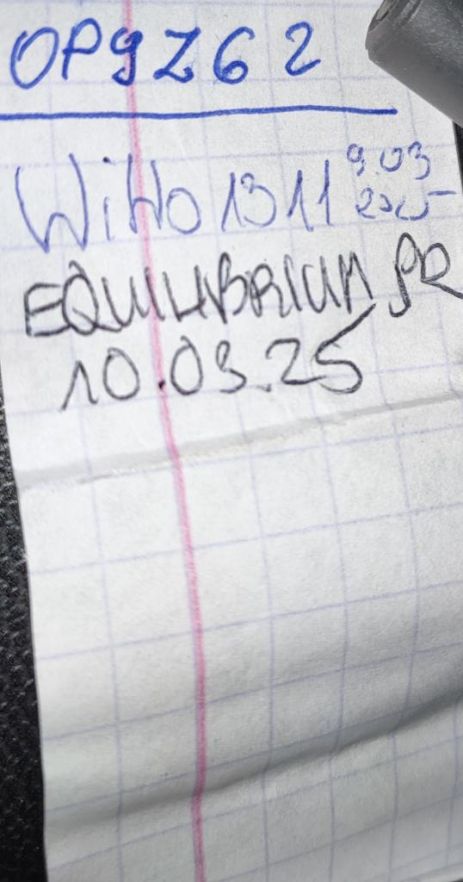 OP9Z62
WiHo1311 9.03
2025
EQUILIBRIUM PR
10.03.25